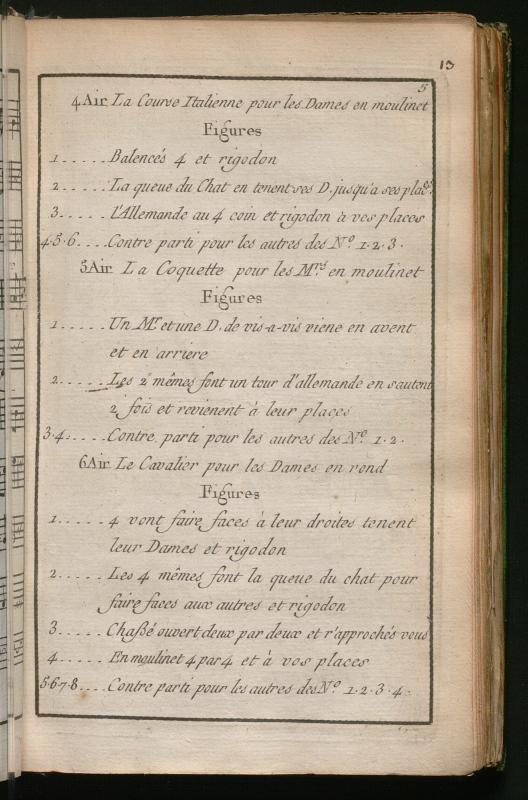 13
5
4 Air La Course Italienne pour les Dames en moulinet
Figures
1.....Balencés 4 et rigodon
2.....La queue du Chat en tenent ses D. jusqu'a ses places
3.....l'Allemande au 4 coin et rigodon à ves places
4.5.6....Contre parti pour les autres des Nº 1.2.3.
5 Air La Coquette pour les Mrs en moulinet
Figures
1.....Un Mr et une D. de vis-a-vis viene en avent
et en arriere
2.....Les 2 mêmes font un tour d'allemande en sautent
2 fois et revienent à leur places
3.4.....Contre parti pour les autres des Nº 1.2.
6 Air Le Cavalier pour les Dames en rond
Figures
1.....4 vont faire faces à leur droites tenent
leur Dames et rigodon
2.....Les 4 mêmes font la queue du chat pour
faire faces aux autres et rigodon
3.....Chaßé ouvert deux par deux et r'approchés vous
4.....En moulinet 4 par 4 et à vos places
5.6.7.8....Contre parti pour les autres des Nº 1.2.3.4.